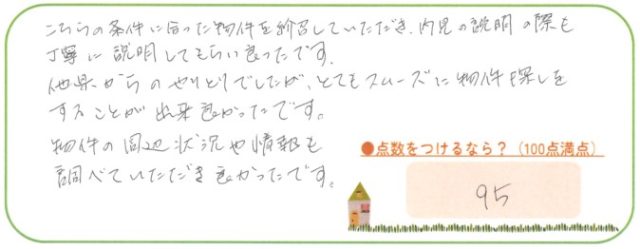 こちらの条件に合った物件を紹介していただき、内見の説明の際も
丁寧に説明してもらい良ったです。
他県からのやりとりでしたが、とてもスムーズに物件を探しを
することが出来良かったです。
物件の周辺状況や情報も
調べていただき良かったです。
●点数をつけるなら？（100点満点）
95